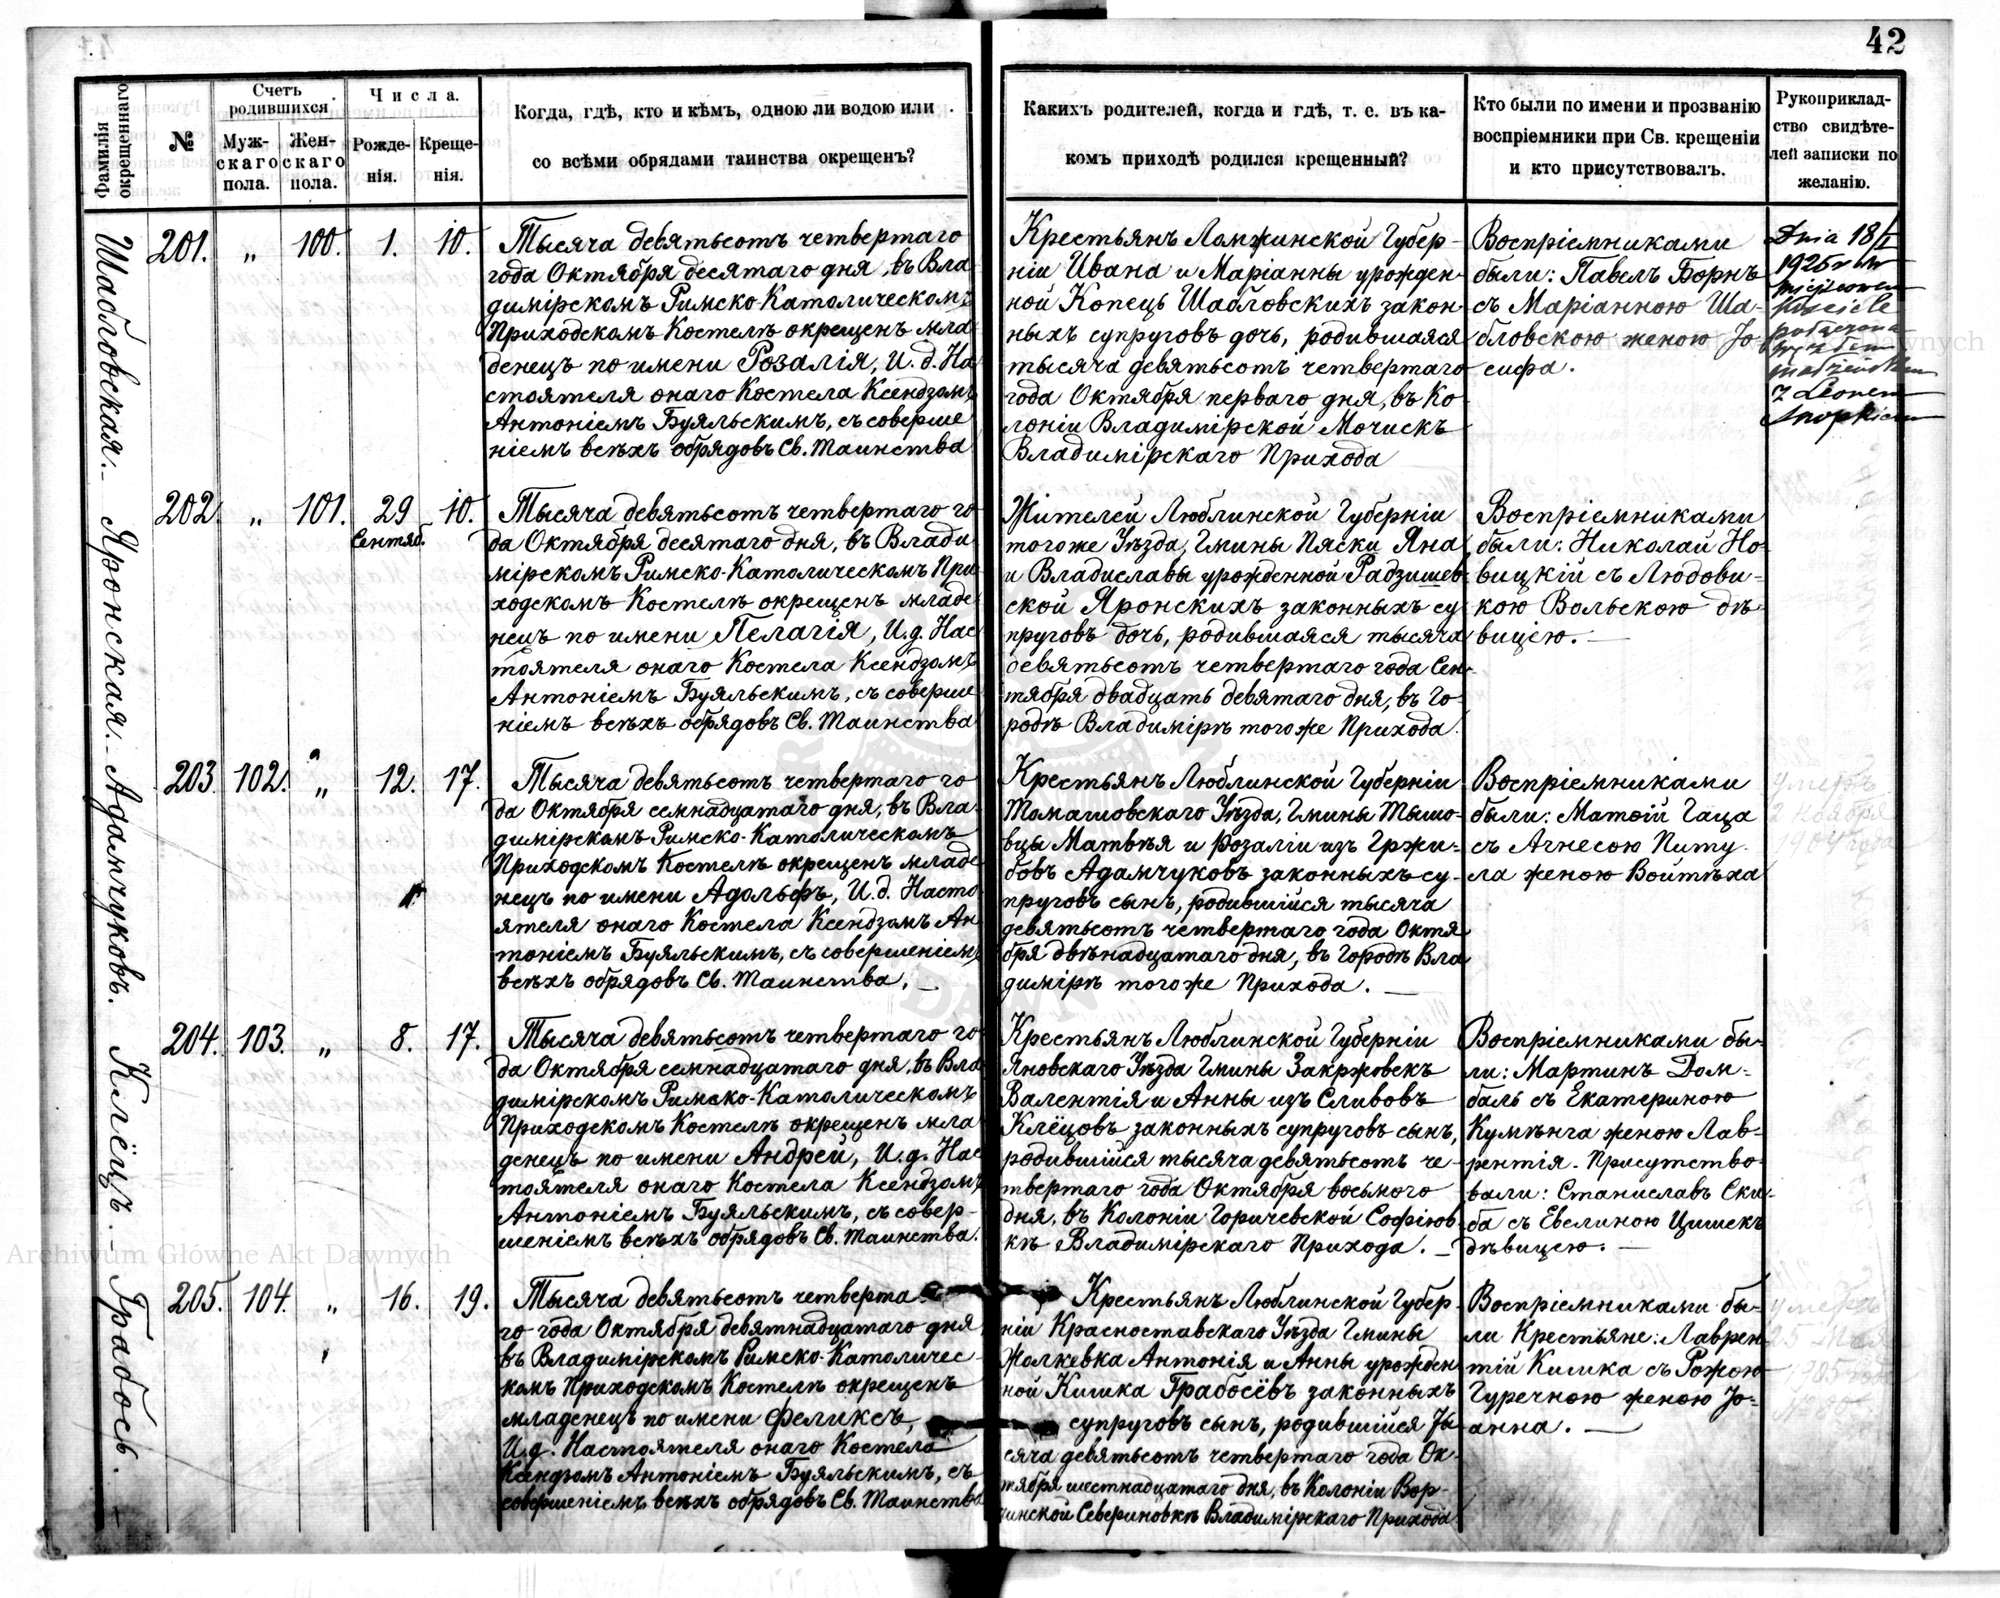 42
Фамилія окрещеннаго
№
Счетъ родившихся
Муж-
скаго
пола.
Жен-
скаго
пола.
Числа.
Рожде-
нія.
Креще-
нія.
Когда, гдѣ, кто и кѣмъ, одною ли водою или
со всѣми обрядами таинства окрещенъ?
Какихъ родителей, когда и гдѣ, т. е. въ ка-
комъ приходѣ родился крещенный?
Кто были по имени и прозванію
воспріемники при Св. крещеніи
и кто присутствовалъ.
Рукоприклад-
ство свидѣте-
лей записки по
желанію.
Шабловская.
201. „ 100. 1. 10.
Тысяча девятьсотъ четвертаго
года Октября десятаго дня, въ Вла
димірскомъ Римско-Католическомъ
Приходскомъ Костелѣ окрещенъ мла
денецъ по имени Розалія, И. д. На
стоятеля онаго Костела Ксендзомъ
Антоніемъ Буяльскимъ, съ соверше
ніемъ всѣхъ обрядовъ Св. Таинства
Крестьянъ Ломжинской Губер-
ніи Ивана и Маріанны урожден-
ной Копець Шабловскихъ закон-
ныхъ супруговъ дочь, родившаяся
тысяча девятьсотъ четвертаго
года Октября перваго дня, въ Ко
лоніи Владимірской Мочискъ
Владимірскаго Прихода
Воспріемниками
были: Павелъ Борнъ
съ Маріанною Ша-
бловскою женою Іо-
сифа.
Dnia 18/I
1925 r. w
miejscowem
kościele
połączona
węzłem
małżeńskim
z Leonem
Snopkiem
Яронская.
202. „ 101. 29 Сентяб. 10.
Тысяча девятьсотъ четвертаго го
да Октября десятаго дня, въ Влади
мірскомъ Римско-Католическомъ При
ходскомъ Костелѣ окрещенъ младе
нецъ по имени Пелагія, И. д. Нас
тоятеля онаго Костела Ксендзомъ
Антоніемъ Буяльскимъ, съ соверше
ніемъ всѣхъ обрядовъ Св. Таинства
Жителей Люблинской Губерніи
тогоже Уѣзда, Гмины Пяски Яна
и Владиславы урожденной Радзишев
ской Яронскихъ законныхъ су
пруговъ дочь, родившаяся тысяча
девятьсотъ четвертаго года Сен-
тября двадцать девятаго дня, въ Го-
родѣ Владимірѣ тогоже Прихода.
Воспріемниками
были: Николай Но-
вицкій съ Людови-
кою Вольскою дѣ-
вицею.
Адамчуковъ.
203. 102. „ 12. 17.
Тысяча девятьсотъ четвертаго го
да Октября семнадцатаго дня, въ Вла-
димірскомъ Римско-Католическомъ
Приходскомъ Костелѣ окрещенъ младе
нецъ по имени Адольфъ, И. д. Насто
ятеля онаго Костела Ксендзомъ Ан
тоніемъ Буяльскимъ, съ совершеніемъ
всѣхъ обрядовъ Св. Таинства.
Крестьянъ Люблинской Губерніи
Томашовскаго Уѣзда, Гмины Тышо-
вцы Матвѣя и Розаліи изъ Гржи-
бовъ Адамчуковъ законныхъ су-
пруговъ сынъ, родившійся тысяча
девятьсотъ четвертаго года Октя
бря двѣнадцатаго дня, въ Городѣ Вла
димірѣ тогоже Прихода.
Воспріемниками
были: Матѳій Гаца
съ Агнесою Питу-
ла женою Войтѣха
умеръ
2 ноября
1904 года
Клёцъ.
204. 103. „ 8. 17.
Тысяча девятьсотъ четвертаго го-
да Октября семнадцатаго дня, въ Вла
димірскомъ Римско-Католическомъ
Приходскомъ Костелѣ окрещенъ мла
денецъ по имени Андрей, И. д. Нас
тоятеля онаго Костела Ксендзомъ
Антоніемъ Буяльскимъ, съ совер-
шеніемъ всѣхъ обрядовъ Св. Таинства.
Крестьянъ Люблинской Губерніи
Яновскаго Уѣзда Гмины Закржовекъ
Валентія и Анны изъ Сливовъ
Клёцовъ законныхъ супруговъ сынъ,
родившійся тысяча девятьсотъ че-
твертаго года Октября восьмого
дня, въ Колоніи Горичевской Софіюв
кѣ Владимірскаго Прихода.
Воспріемниками бы-
ли: Мартинъ Дом-
баль съ Екатериною
Кумѣнга женою Лав-
рентія. Присутство-
вали: Станиславъ Ски-
ба съ Евелиною Цишекъ
дѣвицею.
Грабось.
205. 104. „ 16. 19.
Тысяча девятьсотъ четверта-
го года Октября девятнадцатаго дня
въ Владимірскомъ Римско-Католичес-
комъ Приходскомъ Костелѣ окрещенъ
младенецъ по имени Феликсъ,
И. д. Настоятеля онаго Костела
Ксендзомъ Антоніемъ Буяльскимъ, съ
совершеніемъ всѣхъ обрядовъ Св. Таинства
Крестьянъ Люблинской Губер-
ніи Красноставскаго Уѣзда Гмины
Жолкевка Антонія и Анны урожден
ной Кишка Грабосёвъ законныхъ
супруговъ сынъ, родившійся ты-
сяча девятьсотъ четвертаго года Ок-
тября шестнадцатаго дня, въ Колоніи Вор-
чинской Севериновкѣ Владимірскаго Прихода
Воспріемниками бы-
ли Крестьяне: Лаврен-
тій Кишка съ Рожою
Гуречною женою Іо-
анна.
умеръ
25 Мая
1905 года
Archiwum Główne Akt Dawnych